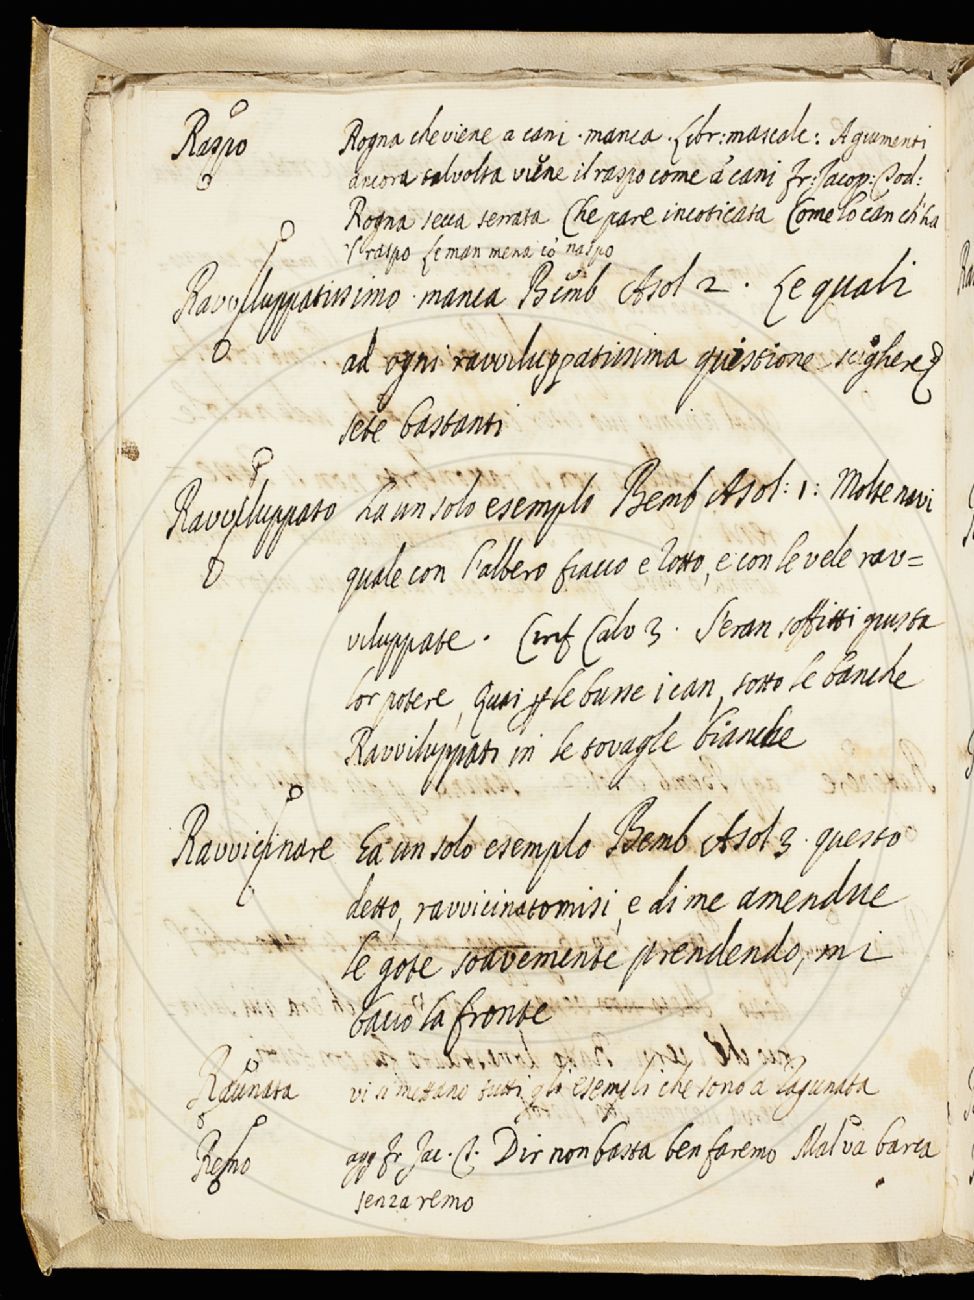 Raspo Rogna che viene a cani. manca. Libr: mascalc: A giumenti
ancora talvolta viene il raspo come a cani fr: Jacop: Tod:
Rogna secca serrata Che pare incoticata Come lo can ch'ha
'l raspo Le man mena co' naspo
Ravviluppatissimo. manca Bemb Asol 2. Le quali
ad ogni ravviluppatissima quistione sciogliere
sete bastanti
Ravviluppato ha un solo esemplo Bemb Asol: 1: Molte navi
quale con l'albero fiacco e rotto, e con le vele rav=
viluppate. Cirif Calv 3. S'eran soffitti giusta
lor potere, Quai le busse i can, sotto le banche
Ravviluppati in le tovagle bianche
Ravvicinare Ha un solo esemplo Bemb Asol 3. questo
detto, ravvicinatomisi, e di me amendue
le gote soavemente prendendo, mi
bacio la fronte
Raunata vi si mettano tutti gli esempli che sono a Ragunata
Remo agg fr. Jac. T. Dir non basta ben faremo Mal va barca
senza remo